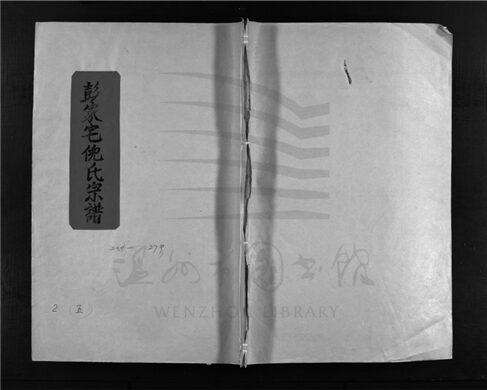 彭家宅倪氏宗譜
WENZHOU LIBRARY
温州市图书馆
2 五